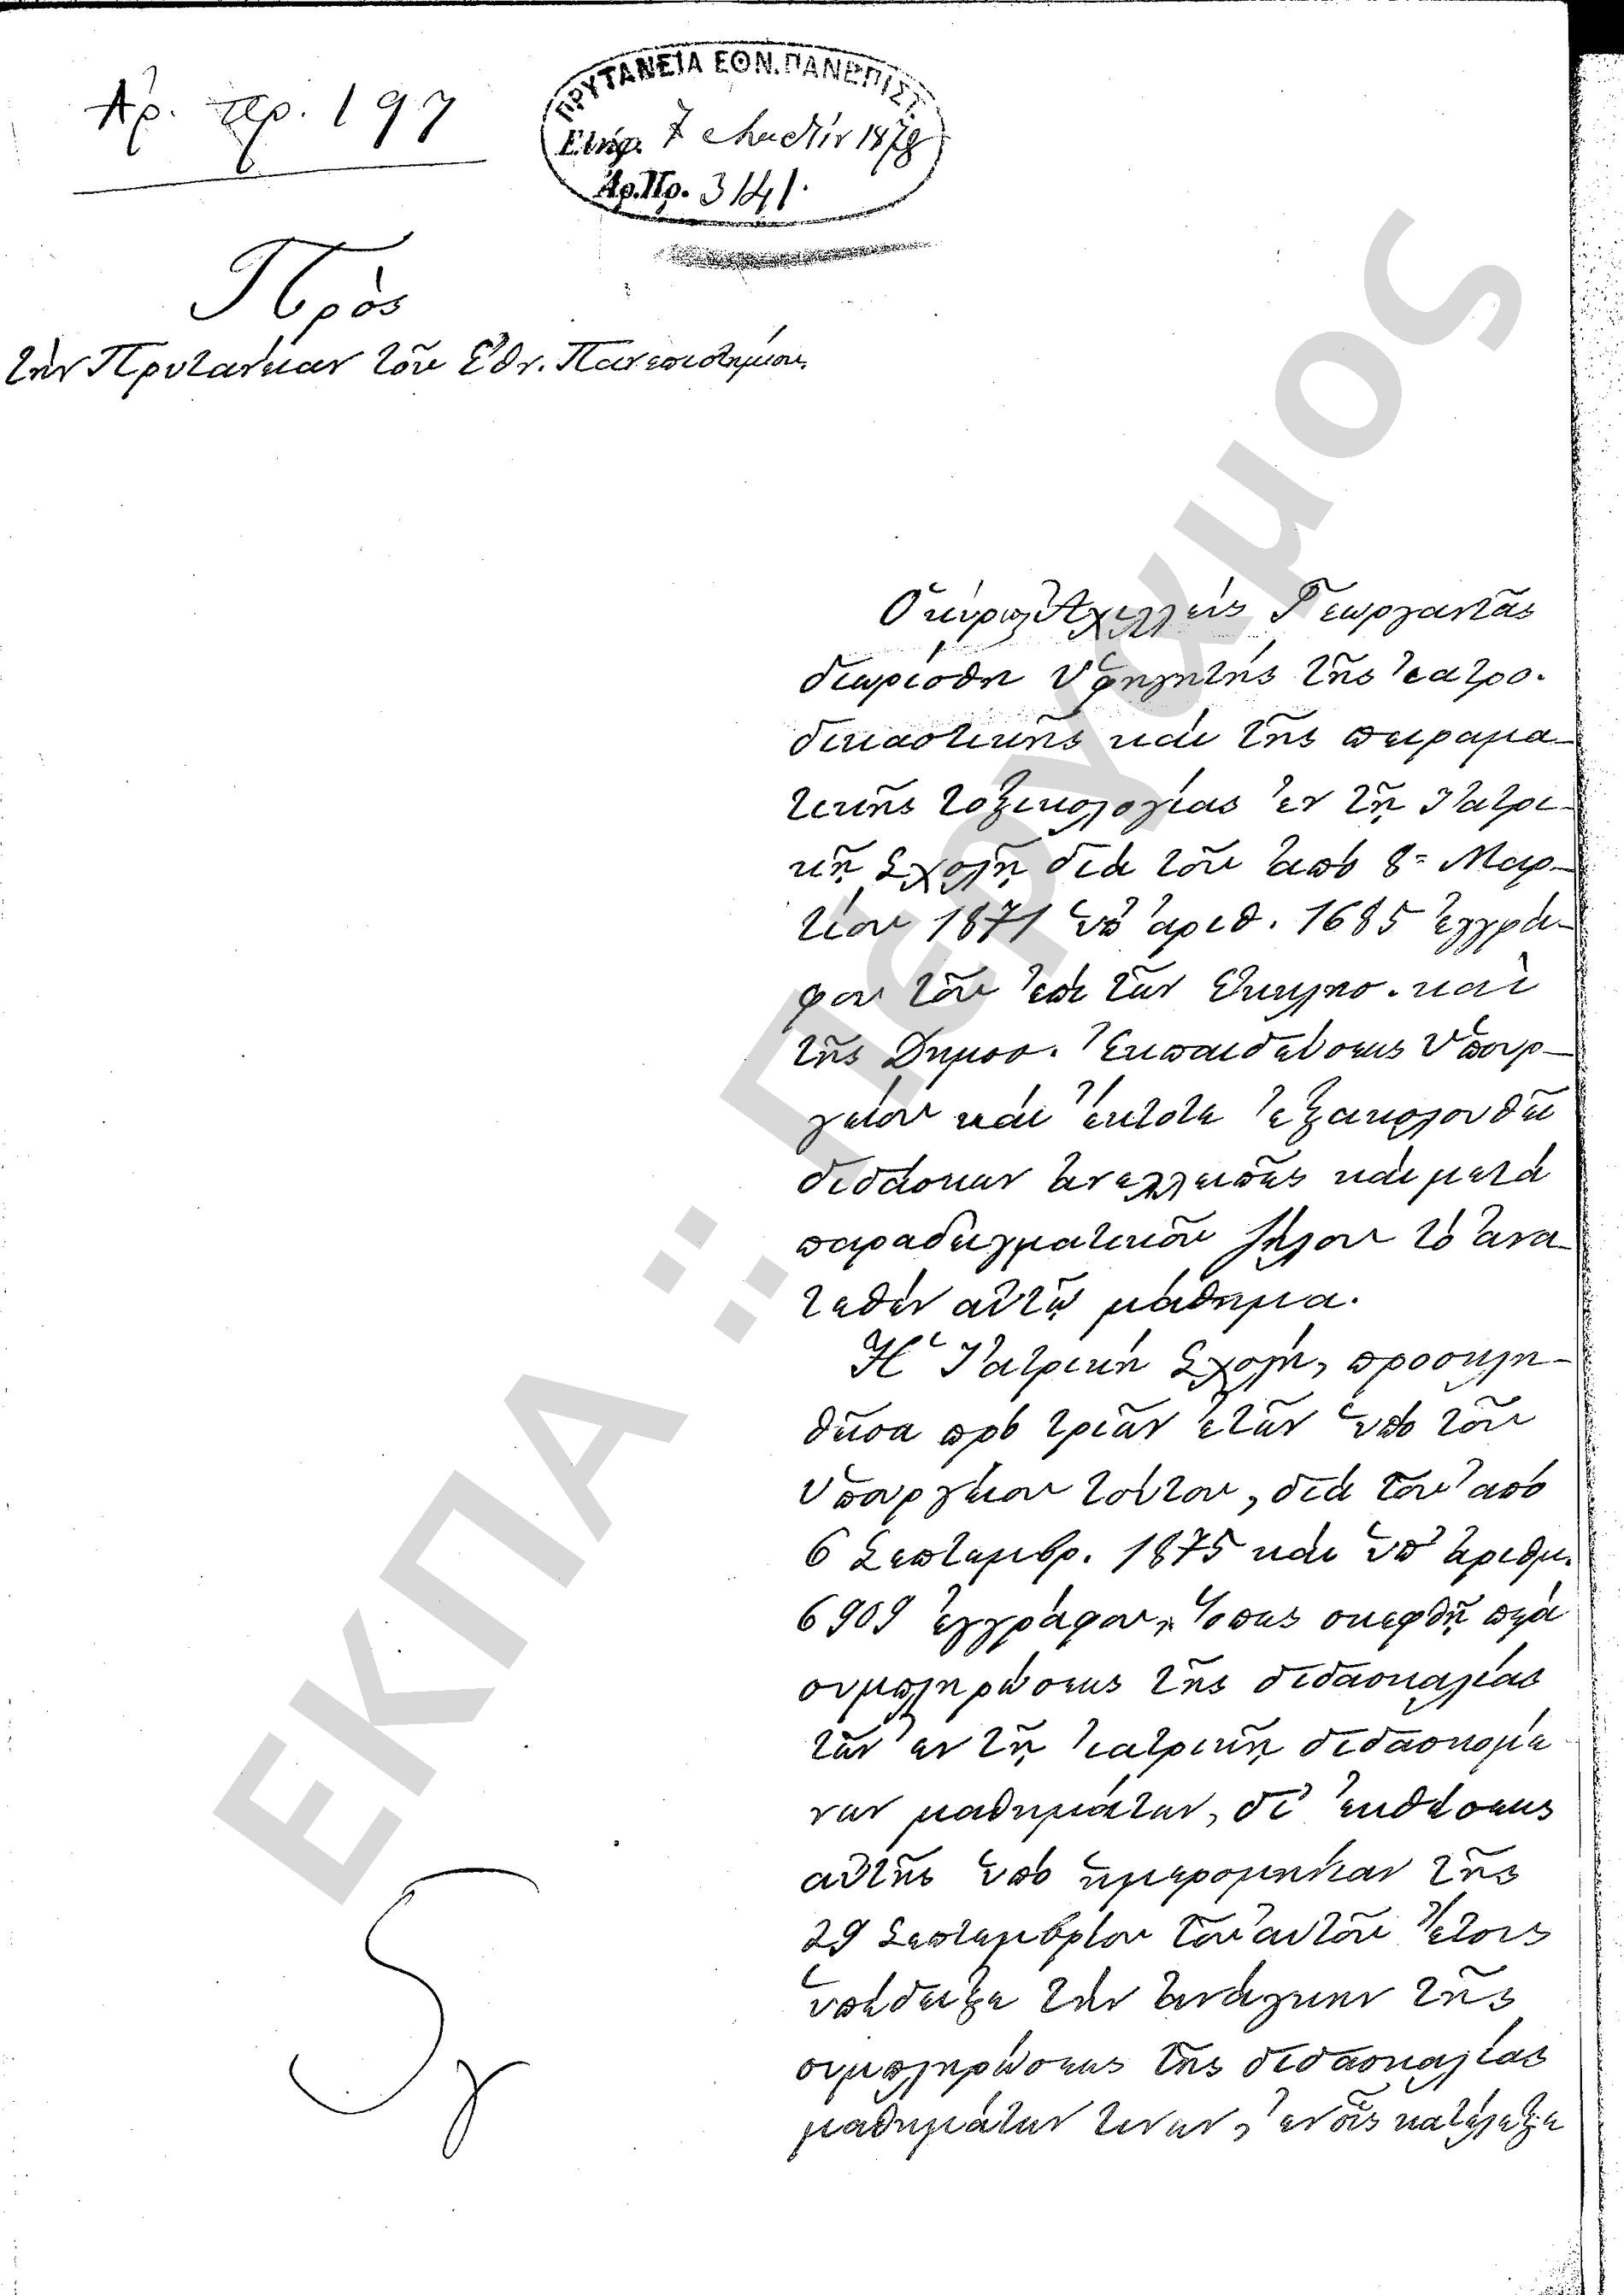 Ἀρ. πρ. 197
ΠΡΥΤΑΝΕΙΑ ΕΘΝ. ΠΑΝΕΠΙΣΤ.
Ἐλήφ. 7 1878
Ἀρ. Πρ. 3141.
Πρὸς
τὴν Πρυτανείαν τοῦ Ἐθν. Πανεπιστημίου.
Ὁ κύριος Ἀχιλλεὺς Γεωργαντᾶς
διωρίσθη ὑφηγητὴς τῆς ἰατρο-
δικαστικῆς καὶ τῆς πειραμα-
τικῆς τοξικολογίας ἐν τῇ Ἰατρι-
κῇ Σχολῇ διὰ τοῦ ἀπὸ 8 Μαρ-
τίου 1871 ὑπ' ἀριθ. 1685 ἐγγρά-
φου τοῦ ἐπὶ τῶν Ἐκκλησ. καὶ
τῆς Δημοσ. Ἐκπαιδεύσεως Ὑπουρ-
γείου καὶ ἔκτοτε ἐξακολουθεῖ
διδάσκων ἀνελλειπῶς καὶ μετὰ
παραδειγματικοῦ ζήλου τὸ ἀνα-
τεθὲν αὐτῷ μάθημα.
Ἡ Ἰατρικὴ Σχολή, προσκλη-
θεῖσα πρὸ τριῶν ἐτῶν ὑπὸ τοῦ
Ὑπουργείου τούτου, διὰ τοῦ ἀπὸ
6 Σεπτεμβρ. 1875 καὶ ὑπ' ἀριθμ.
6909 ἐγγράφου, ὅπως σκεφθῇ περὶ
συμπληρώσεως τῆς διδασκαλίας
τῶν ἐν τῇ ἰατρικῇ διδασκομέ
νων μαθημάτων, δι' ἐκθέσεως
αὐτῆς ὑπὸ ἡμερομηνίαν τῆς
29 Σεπτεμβρίου τοῦ αὐτοῦ ἔτους
ὑπέδειξε τὴν ἀνάγκην τῆς
συμπληρώσεως τῆς διδασκαλίας
μαθημάτων τινων, ἐν οἷς κατέλεξε
ΕΚΠΑ :: Πέργαμος